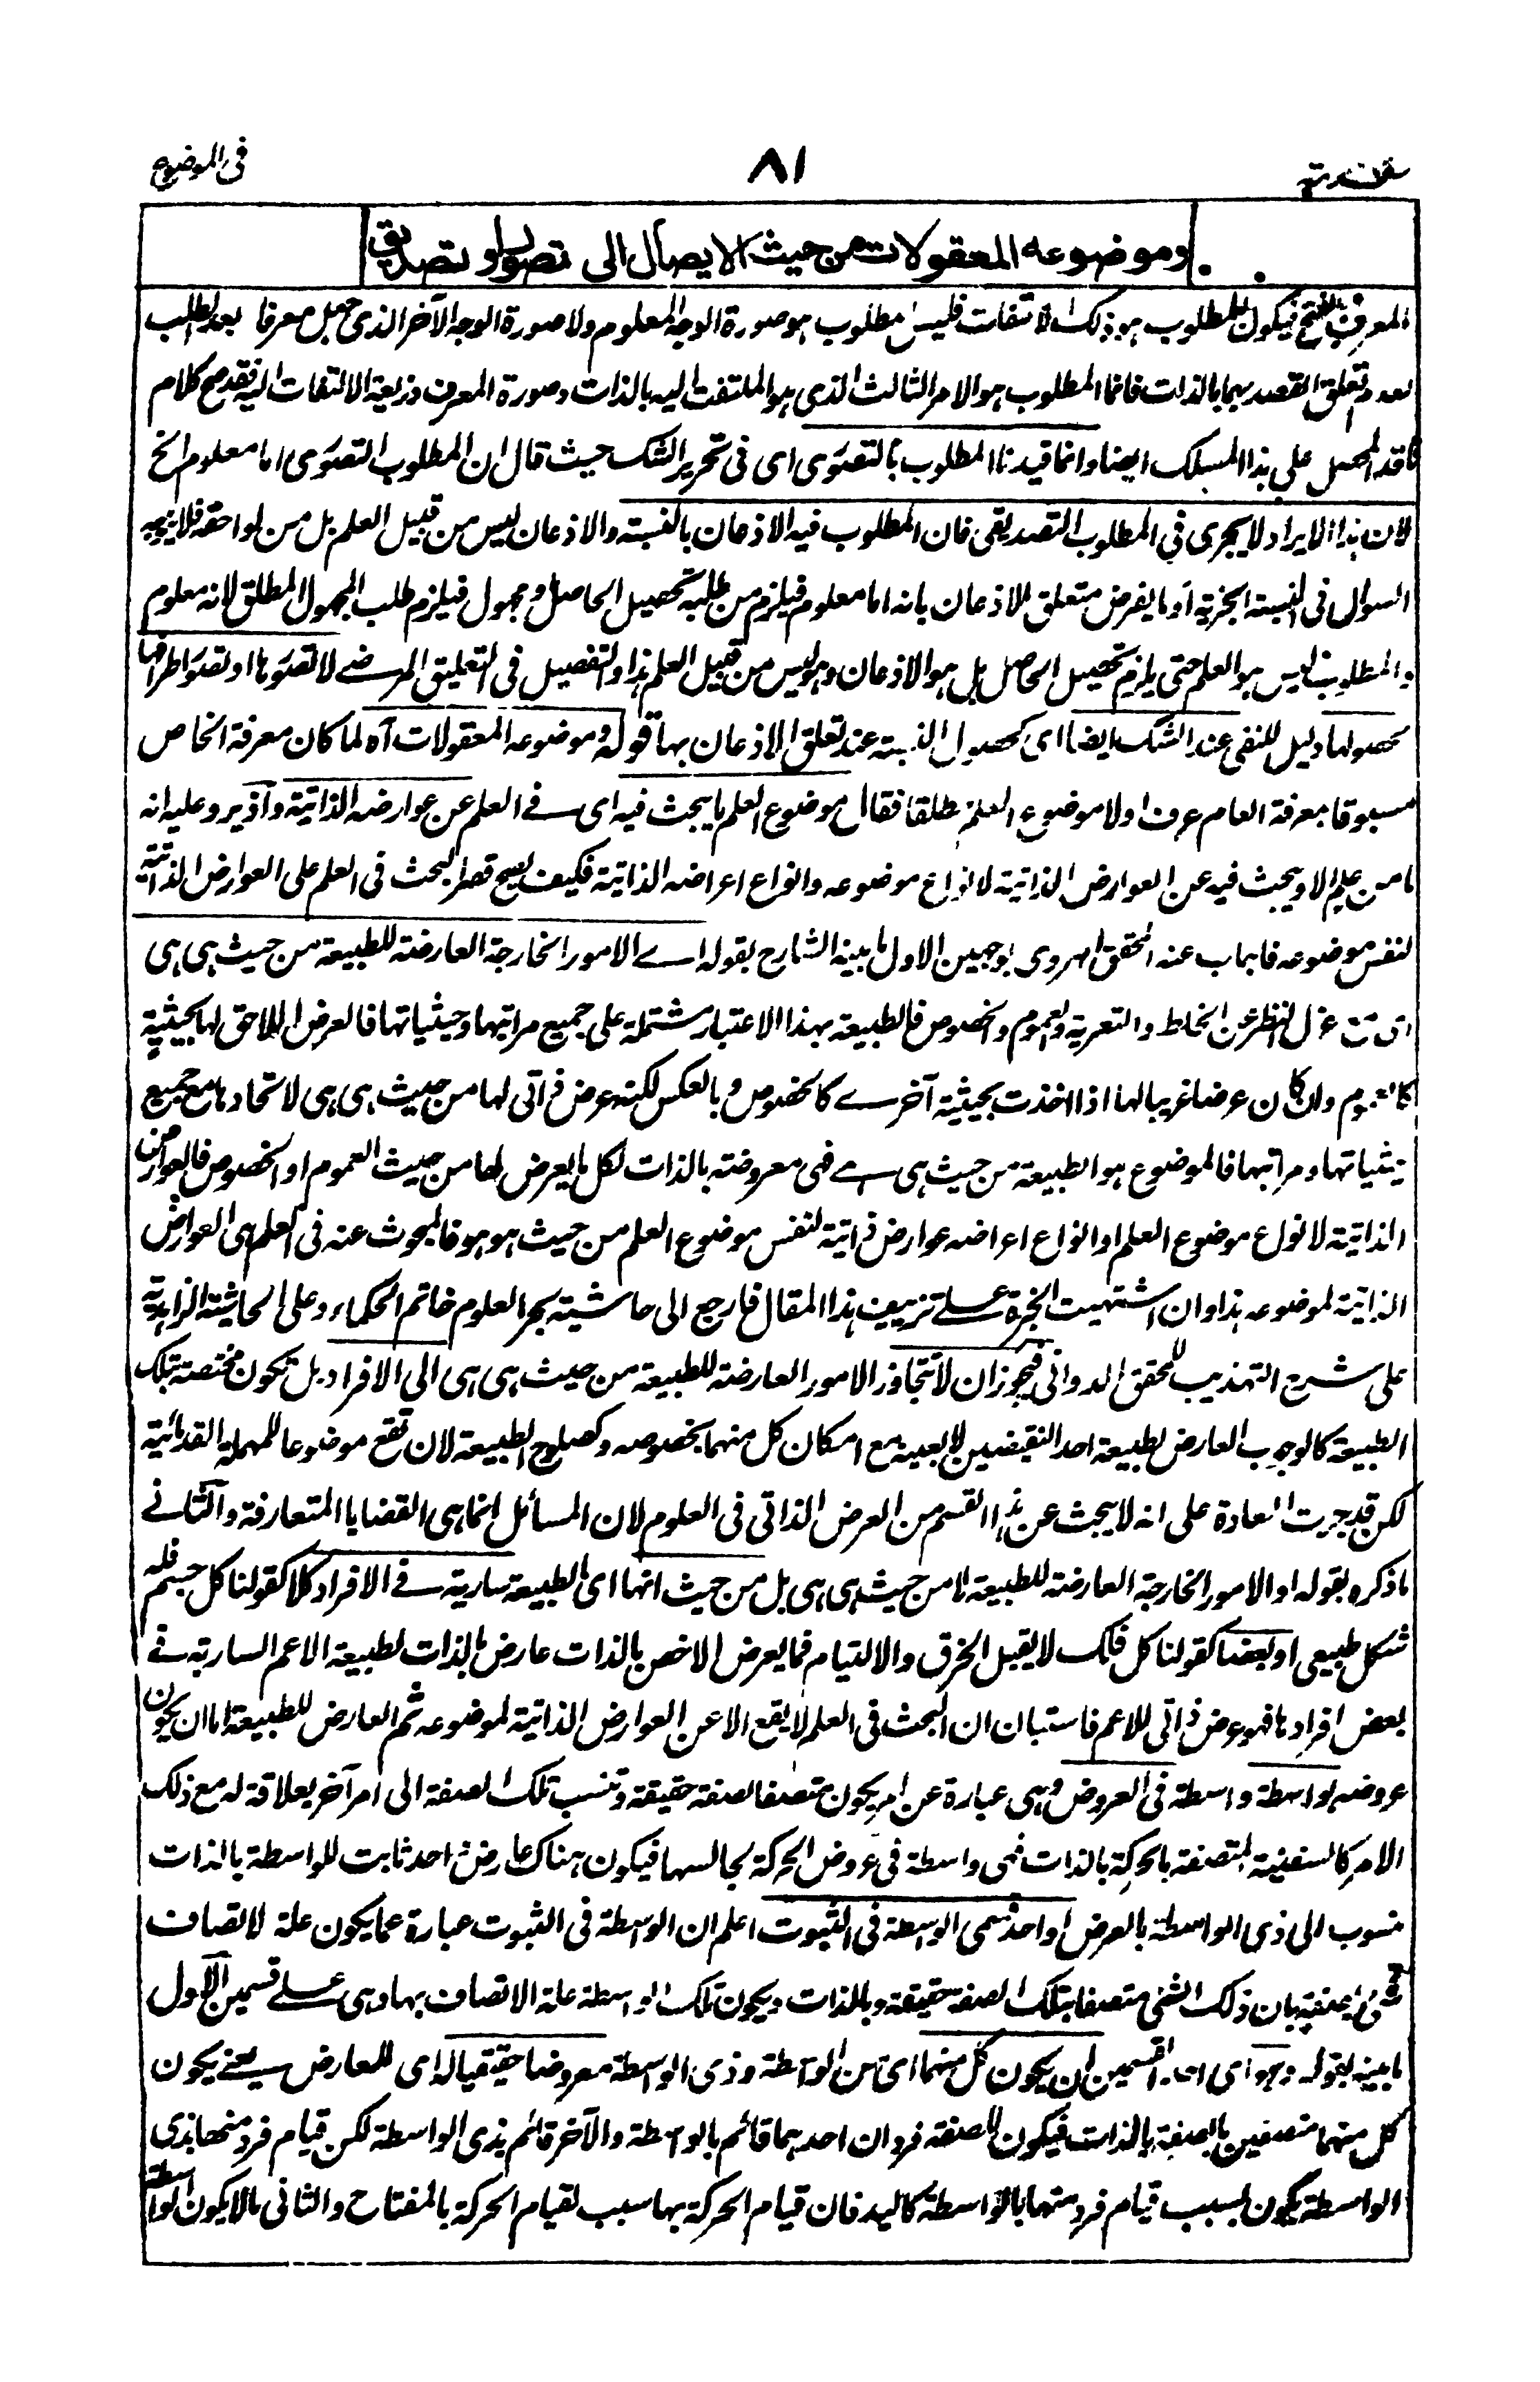 مقدمة ٨١ فى الموضوع
وموضوعه المعقولات من حيث الايصال الى تصور او تصديق
المعرف بالفتح فيكون المطلوب هو ذلك الالتفات فليس مطلوب هو صورة الوجه المعلوم ولا صورة الوجه الآخر الذى جعل معرفا بعد الطلب
لعدم تعلق القصد بهما بالذات فانما المطلوب هو الامر الثالث الذى هو الملتفت اليه بالذات وصورة المعرف ذريعة الالتفات اليه فقد صح كلام
ناقد المحصل على هذا المسلك ايضا وانما قيدنا المطلوب بالتصورى اى فى تحرير الشك حيث قال ان المطلوب التصورى اما معلوم الخ
لان هذا الايراد لا يجرى في المطلوب التصديقى فان المطلوب فيه الاذعان بالنسبة والاذعان ليس من قبيل العلم بل من لواحقه فلا يتوجه
السوال فى النسبة الخبرية او ما يفرض متعلق الاذعان بانه اما معلوم فيلزم من طلبه تحصيل الحاصل او مجهول فيلزم طلب المجهول المطلق لانه معلوم
والمطلوب ليس هو العلم حتى يلزم تحصيل الحاصل بل هو الاذعان وهو ليس من قبيل العلم هذا والتفصيل فى التعليق المرضے لا تصورها او تصور اطرافها
لحصولها دليل للنفى عند الشك ايضا اى لحصول النسبة عند تعلق الاذعان بها قوله وموضوعه المعقولات آه لما كان معرفة الخاص
مسبوقا بمعرفة العام عرف اولا موضوع العلم مطلقا فقال موضوع العلم ما يبحث فيه اى فے العلم عن عوارضه الذاتية واذ يرد عليه انه
ما من علم الا ويبحث فيه عن العوارض الذاتية لانواع موضوعه وانواع اعراضه الذاتية فكيف يصح قصر البحث فى العلم على العوارض الذاتية
لنفس موضوعه فاجاب عنه المحقق الهروى بوجهين الاول ما بينه الشارح بقوله اے الامور الخارجة العارضة للطبيعة من حيث هى هى
اى مع عزل النظر عن الخلط والتعرية والعموم والخصوص فالطبيعة بهذا الاعتبار مشتملة على جميع مراتبها وحيثياتها فالعرض اللاحق لها بحيثية
كالعموم وان كان عرضا غريبا لها اذا اخذت بحيثية آخرے كالخصوص وبالعكس لكنه عرض ذاتى لها من حيث هى هى لاتحادها مع جميع
حيثياتها ومراتبها فالموضوع هو الطبيعة من حيث هى هے فهى معروضة بالذات لكل ما يعرض لها من حيث العموم او الخصوص فالعوارض
الذاتية لانواع موضوع العلم او انواع اعراضه عوارض ذاتية لنفس موضوع العلم من حيث هو هو فالمبحوث عنه فى العلم هى العوارض
الذاتية لموضوعه هذا وان اشتهيت الخبرة علے تزييف هذا المقال فارجع الى حاشية بحر العلوم خاتم الحكماء وعلى الحاشية الزاهدية
على شرح التهذيب للمحقق الدوانى فيجوز ان لا تتجاوز الامور العارضة للطبيعة من حيث هى هى الى الافراد بل تكون مختصة بتلك
الطبيعة كالوجوب العارض لطبيعة احد النقيضين لا بعينه مع امكان كل منهما بخصوصه وكصلوح الطبيعة لان تقع موضوعا للمهملة القدمائية
لكن قد جرت العادة على انه لا يبحث عن هذا القسم من العرض الذاتى فى العلوم لان المسائل انما هى القضايا المتعارفة والثانے
ما ذكره بقوله او الامور الخارجة العارضة للطبيعة لا من حيث هى هى بل من حيث انها اى الطبيعة سارية فے الافراد كلا كقولنا كل جسم فله
شكل طبيعى او بعضا كقولنا كل فلك لا يقبل الخرق والالتيام فما يعرض الاخص بالذات عارض بالذات لطبيعة الاعم السارية فے
بعض افرادها فهو عرض ذاتى للاعم فاستبان ان البحث فى العلم لا يقع الا عن العوارض الذاتية لموضوعه ثم العارض للطبيعة اما ان يكون
عروضه بواسطة واسطة فى العروض وهى عبارة عن امر يكون متصفا بصفة حقيقة وتنسب تلك الصفة الى امر آخر بعلاقة له مع ذلك
الامر كالسفينة المتصفة بالحركة بالذات فهى واسطة فى عروض الحركة لجالسها فيكون هناك عارض واحد ثابت للواسطة بالذات
منسوب الى ذى الواسطة بالعرض او احدى الواسطة فى الثبوت اعلم ان الواسطة فى الثبوت عبارة عما يكون علة لاتصاف
شئ بصفة بان ذلك الشئ متصفا بتلك الصفة حقيقة وبالذات ويكون تلك الواسطة علة الاتصاف بها وهى علے قسمين الاول
ما بينه بقوله وهو اى احد القسمين ان يكون كل منهما اى من الواسطة وذى الواسطة معروضا حقيقيا له اى للعارض يعنے يكون
كل منهما متصفين بالصفة بالذات فيكون للصفة فردان احدهما قائم بالواسطة والآخر قائم بذى الواسطة لكن قيام فرد منها بذى
الواسطة يكون بسبب قيام فرد منها بالواسطة كاليد فان قيام الحركة بها سبب لقيام الحركة بالمفتاح والثانى ما لا يكون الواسطة